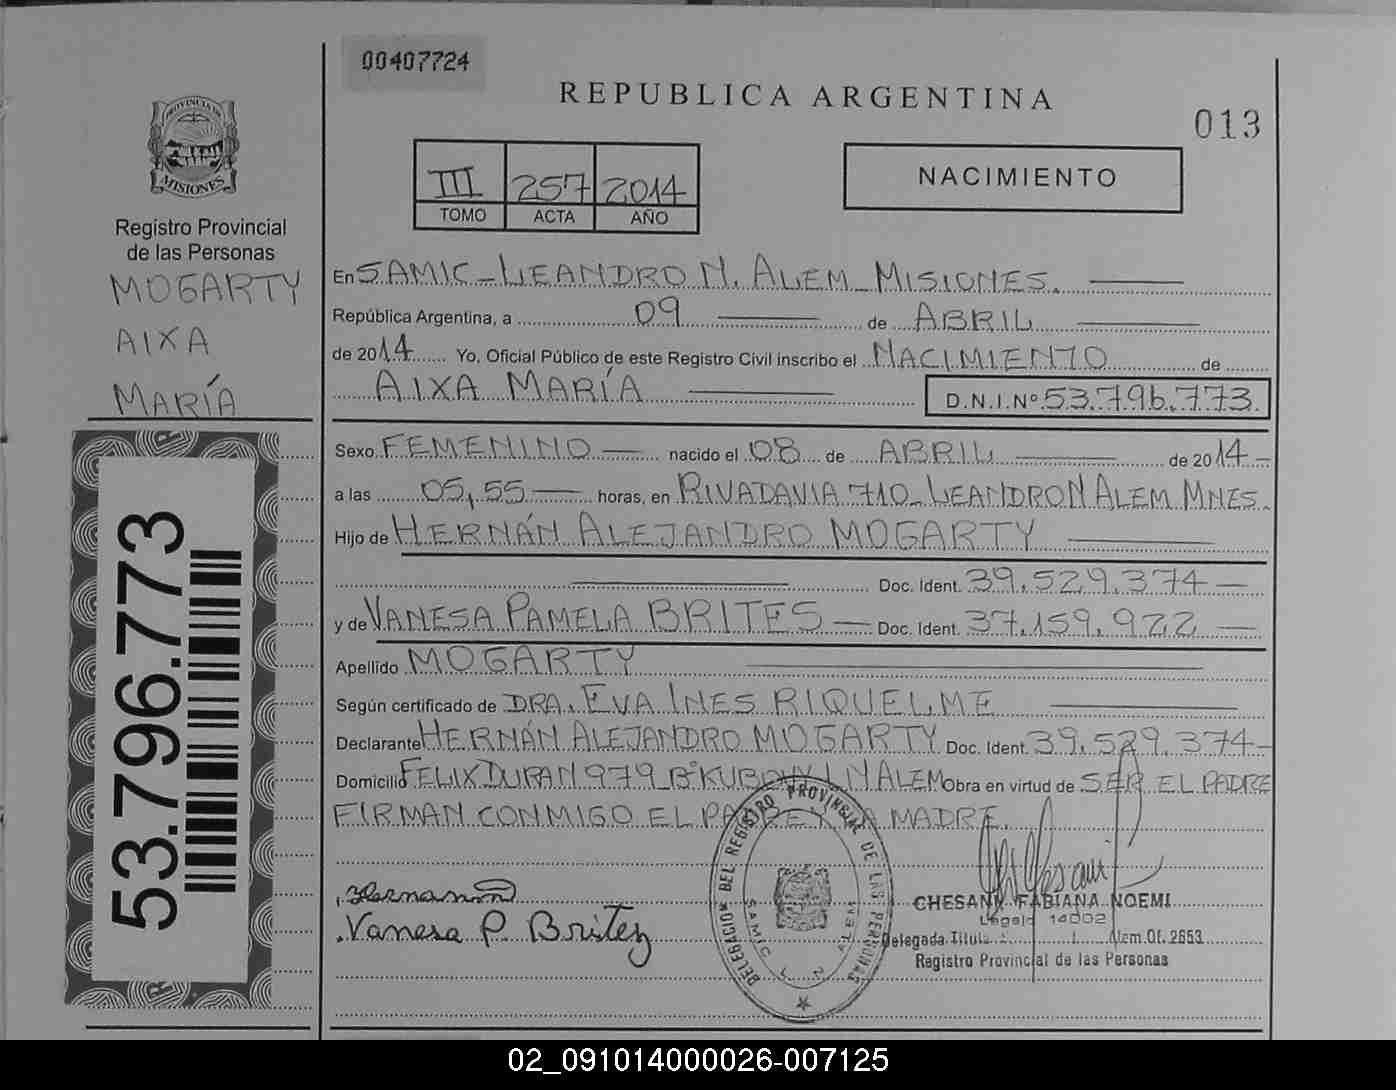 00407724
REPUBLICA ARGENTINA
013
PROVINCIA DE
MISIONES
Registro Provincial
de las Personas
MOGARTY
AIXA
MARÍA
53.796.773
III 257 2014
TOMO ACTA AÑO
NACIMIENTO
En SAMIC - LEANDRO N. ALEM - MISIONES.
República Argentina, a 09 de ABRIL
de 2014 Yo, Oficial Público de este Registro Civil inscribo el NACIMIENTO de
AIXA MARÍA D.N.I.Nº 53.796.773.
Sexo FEMENINO nacido el 08 de ABRIL de 2014
a las 05,55 horas, en RIVADAVIA 710 - LEANDRO N ALEM MNES.
Hijo de HERNÁN ALEJANDRO MOGARTY
Doc. Ident. 39.529.374
y de VANESA PAMELA BRITES Doc. Ident. 37.159.922
Apellido MOGARTY
Según certificado de DRA. EVA INES RIQUELME
Declarante HERNÁN ALEJANDRO MOGARTY Doc. Ident. 39.529.374
Domicilio FELIX DURAN 979 Bº L N ALEM Obra en virtud de SER EL PADRE
FIRMAN CONMIGO EL PADRE Y LA MADRE.
Vanesa P. Britez
DELEGACION DEL REGISTRO PROVINCIAL DE LAS PERSONAS
SAMIC L N
CHESANY FABIANA NOEMI
Legajo 14002
Delegada Titular Alem Of. 2653
Registro Provincial de las Personas
02_091014000026-007125